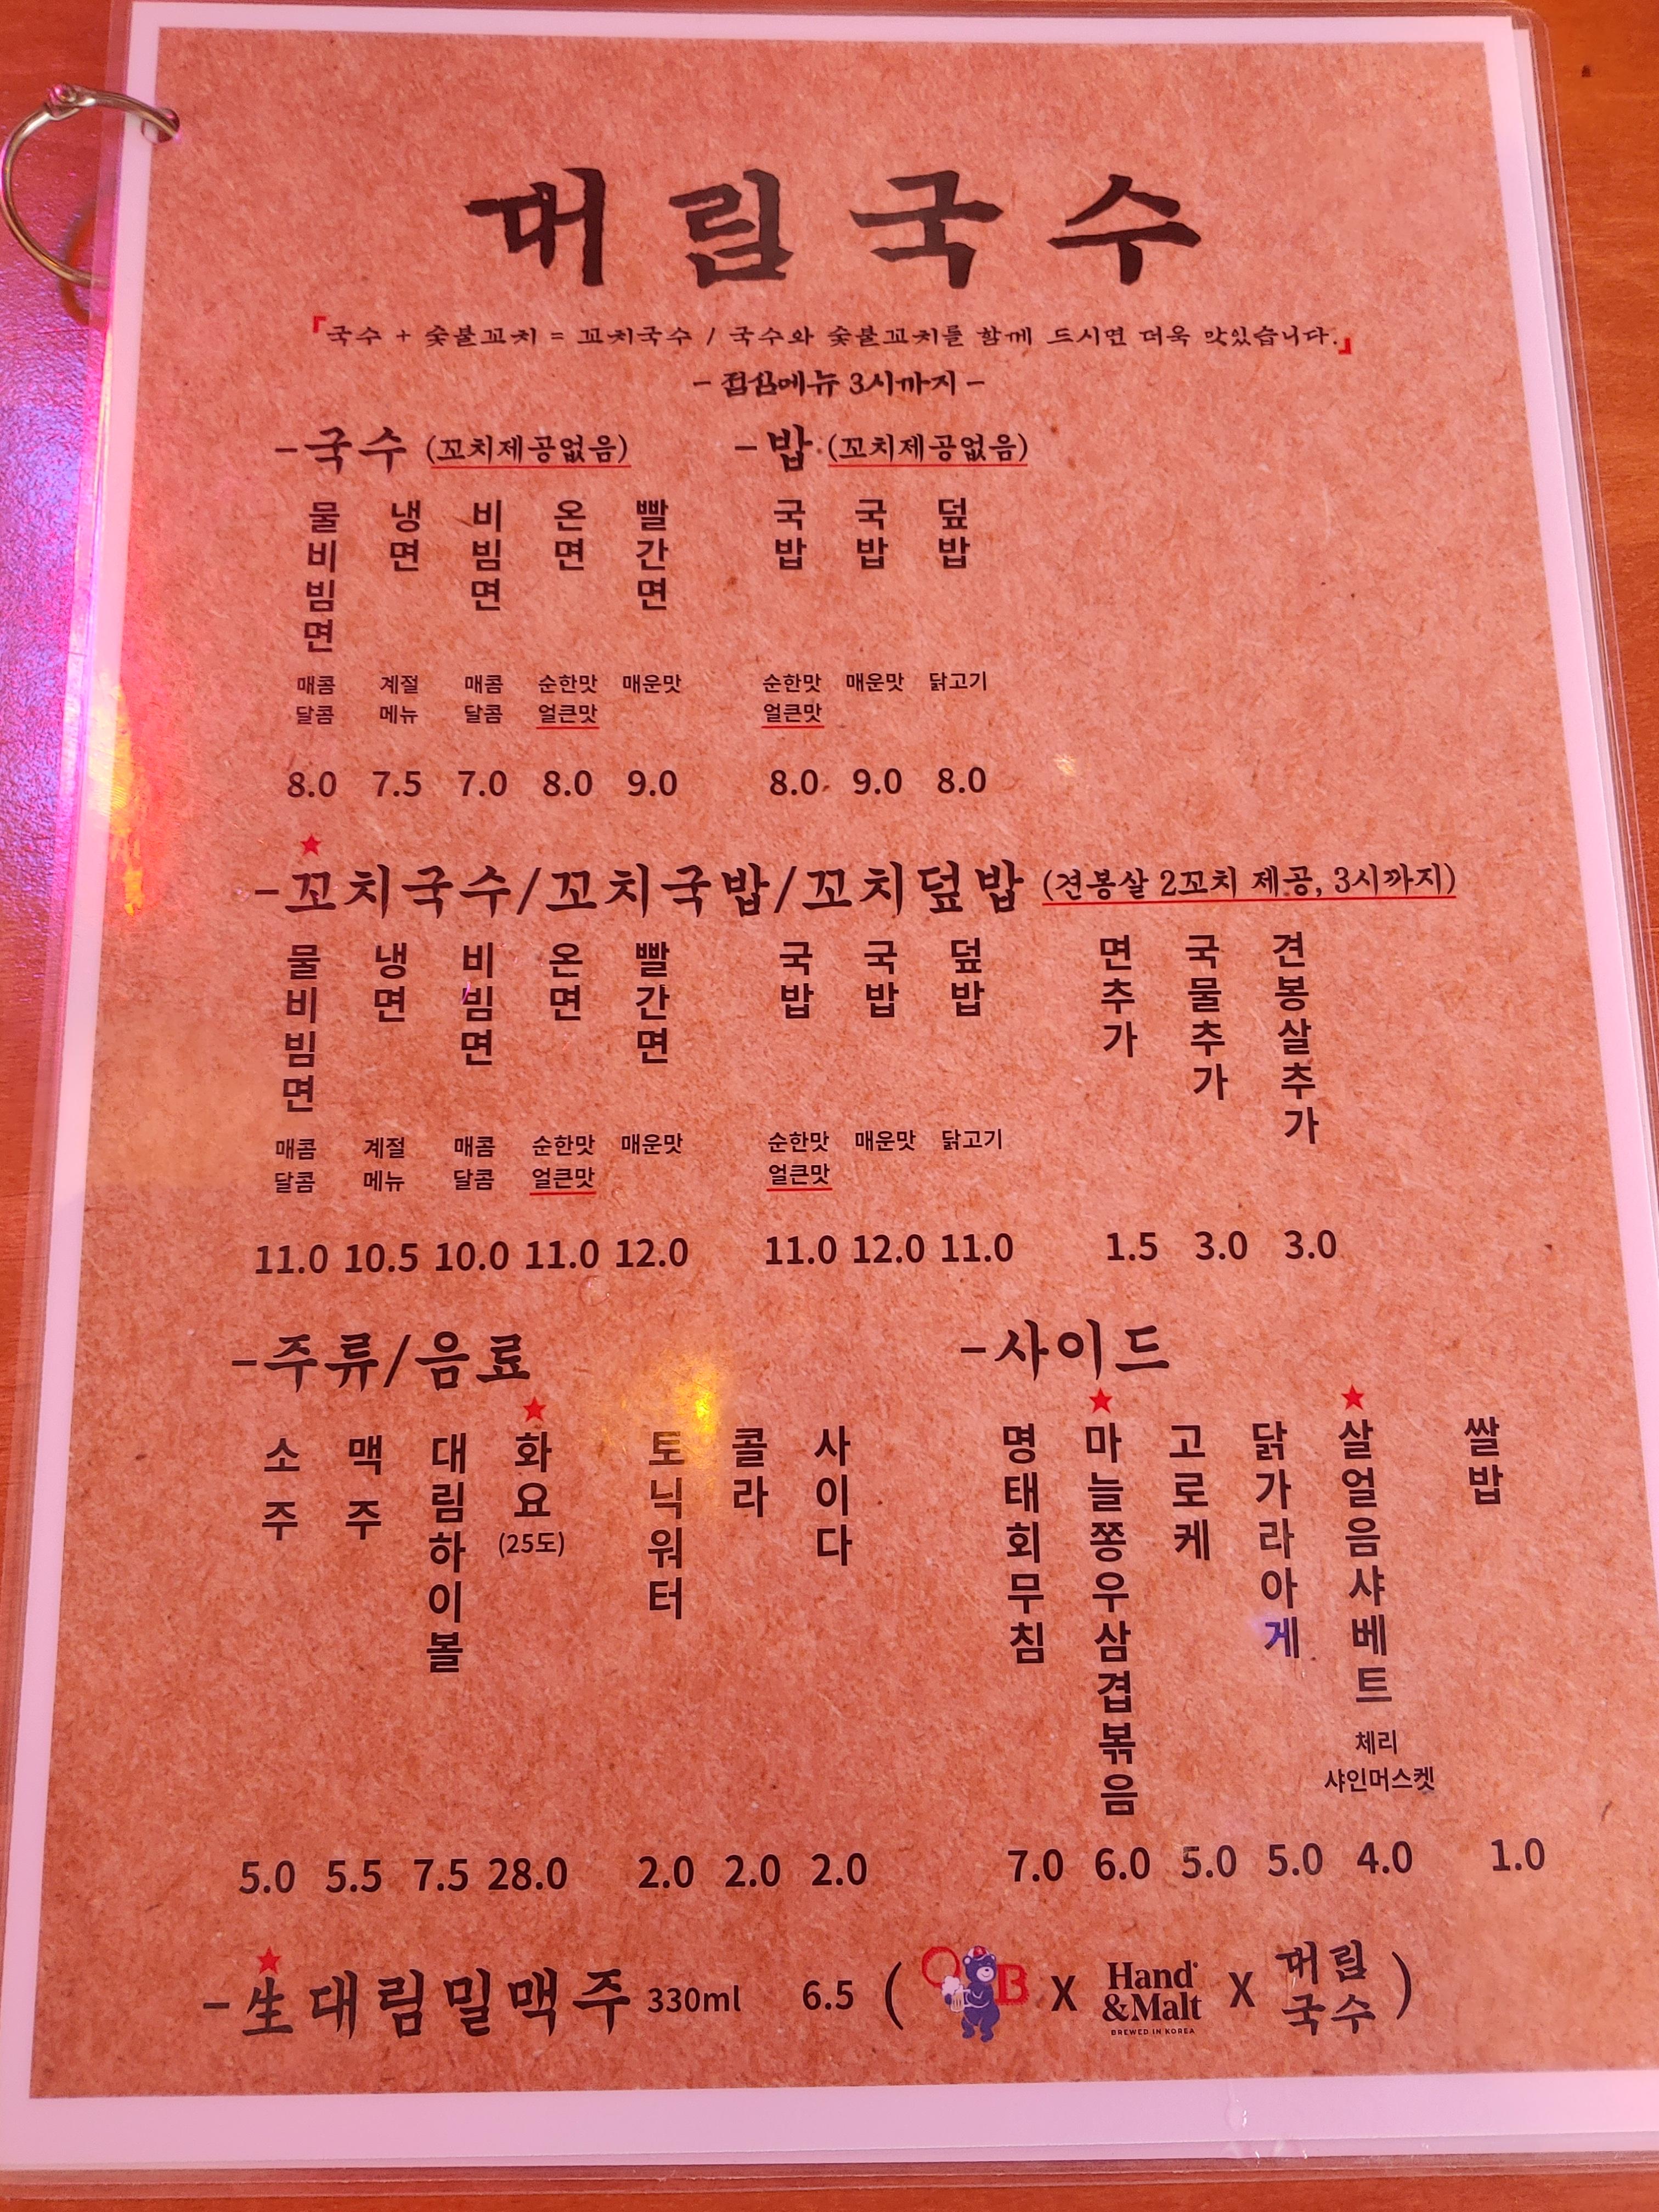 대림국수
「국수 + 숯불꼬치 = 꼬치국수 / 국수와 숯불꼬치를 함께 드시면 더욱 맛있습니다.」
- 점심메뉴 3시까지 -
-국수 (꼬치제공없음)
물비빔면 냉면 비빔면 온면 빨간면
매콤 계절 매콤 순한맛 매운맛
달콤 메뉴 달콤 얼큰맛
8.0 7.5 7.0 8.0 9.0
-밥 (꼬치제공없음)
국밥 국밥 덮밥
순한맛 매운맛 닭고기
얼큰맛
8.0 9.0 8.0
-꼬치국수/꼬치국밥/꼬치덮밥 (견봉살 2꼬치 제공, 3시까지)
물비빔면 냉면 비빔면 온면 빨간면 국밥 국밥 덮밥 면추가 국물추가 견봉살추가
매콤 계절 매콤 순한맛 매운맛 순한맛 매운맛 닭고기
달콤 메뉴 달콤 얼큰맛 얼큰맛
11.0 10.5 10.0 11.0 12.0 11.0 12.0 11.0 1.5 3.0 3.0
-주류/음료
소주 맥주 대림하이볼 화요 토닉워터 콜라 사이다
(25도)
5.0 5.5 7.5 28.0 2.0 2.0 2.0
-사이드
명태회무침 마늘쫑우삼겹볶음 고로케 닭가라아게 살얼음샤베트 쌀밥
체리
샤인머스켓
7.0 6.0 5.0 5.0 4.0 1.0
-生대림밀맥주 330ml 6.5 ( OB X Hand &Malt BREWED IN KOREA X 대림국수 )